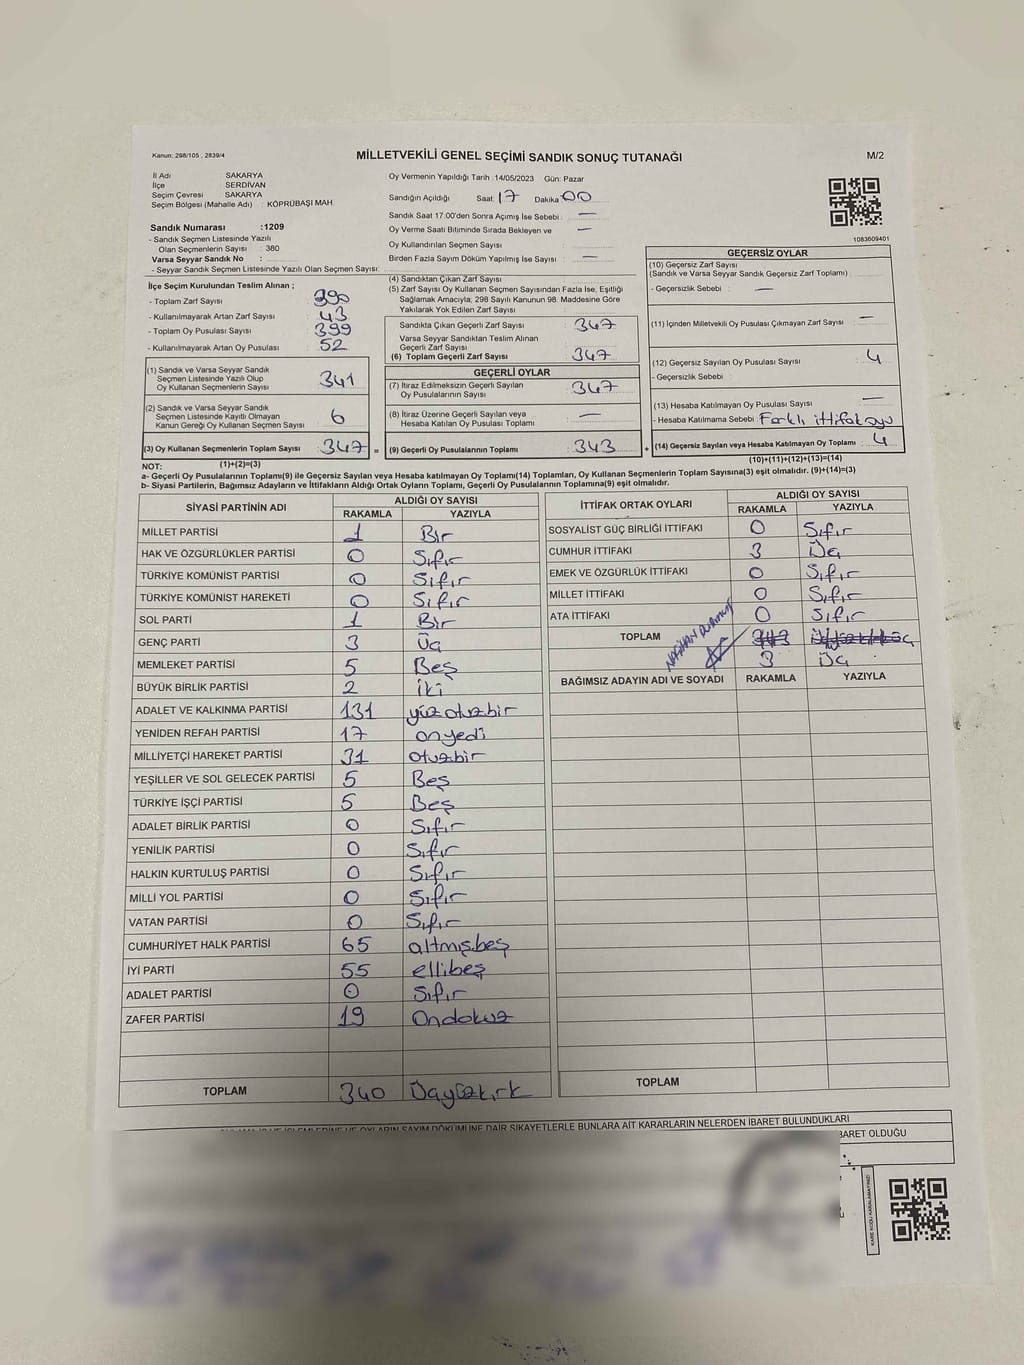 Kanun: 298/105 , 2839/4
MİLLETVEKİLİ GENEL SEÇİMİ SANDIK SONUÇ TUTANAĞI
M/2
İl Adı SAKARYA
İlçe SERDİVAN
Seçim Çevresi SAKARYA
Seçim Bölgesi (Mahalle Adı) : KÖPRÜBAŞI MAH.
Sandık Numarası :1209
- Sandık Seçmen Listesinde Yazılı
Olan Seçmenlerin Sayısı : 380
Varsa Seyyar Sandık No :
- Seyyar Sandık Seçmen Listesinde Yazılı Olan Seçmen Sayısı:
Oy Vermenin Yapıldığı Tarih :14/05/2023 Gün: Pazar
Sandığın Açıldığı Saat: 17 Dakika 00
Sandık Saat 17.00'den Sonra Açımış İse Sebebi : —
Oy Verme Saati Bitiminde Sırada Bekleyen ve —
Oy Kullandırılan Seçmen Sayısı :
Birden Fazla Sayım Döküm Yapılmış İse Sayısı : —
1083609401
İlçe Seçim Kurulundan Teslim Alınan ;
- Toplam Zarf Sayısı : 390
- Kullanılmayarak Artan Zarf Sayısı : 43
- Toplam Oy Pusulası Sayısı : 399
- Kullanılmayarak Artan Oy Pusulası : 52
(1) Sandık ve Varsa Seyyar Sandık
Seçmen Listesinde Yazılı Olup
Oy Kullanan Seçmenlerin Sayısı 341
(2) Sandık ve Varsa Seyyar Sandık
Seçmen Listesinde Kayıtlı Olmayan
Kanun Gereği Oy Kullanan Seçmen Sayısı 6
(3) Oy Kullanan Seçmenlerin Toplam Sayısı 347 =
(1)+(2)=(3)
(4) Sandıktan Çıkan Zarf Sayısı :
(5) Zarf Sayısı Oy Kullanan Seçmen Sayısından Fazla İse, Eşitliği
Sağlamak Amacıyla; 298 Sayılı Kanunun 98. Maddesine Göre
Yakılarak Yok Edilen Zarf Sayısı :
Sandıkta Çıkan Geçerli Zarf Sayısı : 347
Varsa Seyyar Sandıktan Teslim Alınan
Geçerli Zarf Sayısı :
(6) Toplam Geçerli Zarf Sayısı : 347
GEÇERLİ OYLAR
(7) İtiraz Edilmeksizin Geçerli Sayılan : 347
Oy Pusulalarının Sayısı
(8) İtiraz Üzerine Geçerli Sayılan veya : —
Hesaba Katılan Oy Pusulası Toplamı
(9) Geçerli Oy Pusulalarının Toplamı : 343 +
GEÇERSİZ OYLAR
(10) Geçersiz Zarf Sayısı
(Sandık ve Varsa Seyyar Sandık Geçersiz Zarf Toplamı) :
- Geçersizlik Sebebi : —
(11) İçinden Milletvekili Oy Pusulası Çıkmayan Zarf Sayısı : —
(12) Geçersiz Sayılan Oy Pusulası Sayısı : 4
- Geçersizlik Sebebi :
(13) Hesaba Katılmayan Oy Pusulası Sayısı : —
- Hesaba Katılmama Sebebi : Farklı ittifak oyu
(14) Geçersiz Sayılan veya Hesaba Katılmayan Oy Toplamı : 4
(10)+(11)+(12)+(13)=(14)
NOT:
a- Geçerli Oy Pusulalarının Toplamı(9) ile Geçersiz Sayılan veya Hesaba Katılmayan Oy Toplamı(14) Toplamları, Oy Kullanan Seçmenlerin Toplam Sayısına(3) eşit olmalıdır. (9)+(14)=(3)
b- Siyasi Partilerin, Bağımsız Adayların ve İttifakların Aldığı Ortak Oyların Toplamı, Geçerli Oy Pusulalarının Toplamına(9) eşit olmalıdır.
SİYASİ PARTİNİN ADI ALDIĞI OY SAYISI
RAKAMLA YAZIYLA
MİLLET PARTİSİ 1 Bir
HAK VE ÖZGÜRLÜKLER PARTİSİ 0 Sıfır
TÜRKİYE KOMÜNİST PARTİSİ 0 Sıfır
TÜRKİYE KOMÜNİST HAREKETİ 0 Sıfır
SOL PARTİ 1 Bir
GENÇ PARTİ 3 Üç
MEMLEKET PARTİSİ 5 Beş
BÜYÜK BİRLİK PARTİSİ 2 İki
ADALET VE KALKINMA PARTİSİ 131 yüz otuzbir
YENİDEN REFAH PARTİSİ 17 onyedi
MİLLİYETÇİ HAREKET PARTİSİ 31 otuzbir
YEŞİLLER VE SOL GELECEK PARTİSİ 5 Beş
TÜRKİYE İŞÇİ PARTİSİ 5 Beş
ADALET BİRLİK PARTİSİ 0 Sıfır
YENİLİK PARTİSİ 0 Sıfır
HALKIN KURTULUŞ PARTİSİ 0 Sıfır
MİLLİ YOL PARTİSİ 0 Sıfır
VATAN PARTİSİ 0 Sıfır
CUMHURİYET HALK PARTİSİ 65 altmışbeş
İYİ PARTİ 55 ellibeş
ADALET PARTİSİ 0 Sıfır
ZAFER PARTİSİ 19 Ondokuz
TOPLAM 340 Üçyüzkırk
İTTİFAK ORTAK OYLARI ALDIĞI OY SAYISI
RAKAMLA YAZIYLA
SOSYALİST GÜÇ BİRLİĞİ İTTİFAKI 0 Sıfır
CUMHUR İTTİFAKI 3 Üç
EMEK VE ÖZGÜRLÜK İTTİFAKI 0 Sıfır
MİLLET İTTİFAKI 0 Sıfır
ATA İTTİFAKI 0 Sıfır
TOPLAM 343
3 Üç
BAĞIMSIZ ADAYIN ADI VE SOYADI RAKAMLA YAZIYLA
TOPLAM
DAİR ŞİKAYETLERLE BUNLARA AİT KARARLARIN NELERDEN İBARET BULUNDUKLARI
BARET OLDUĞU